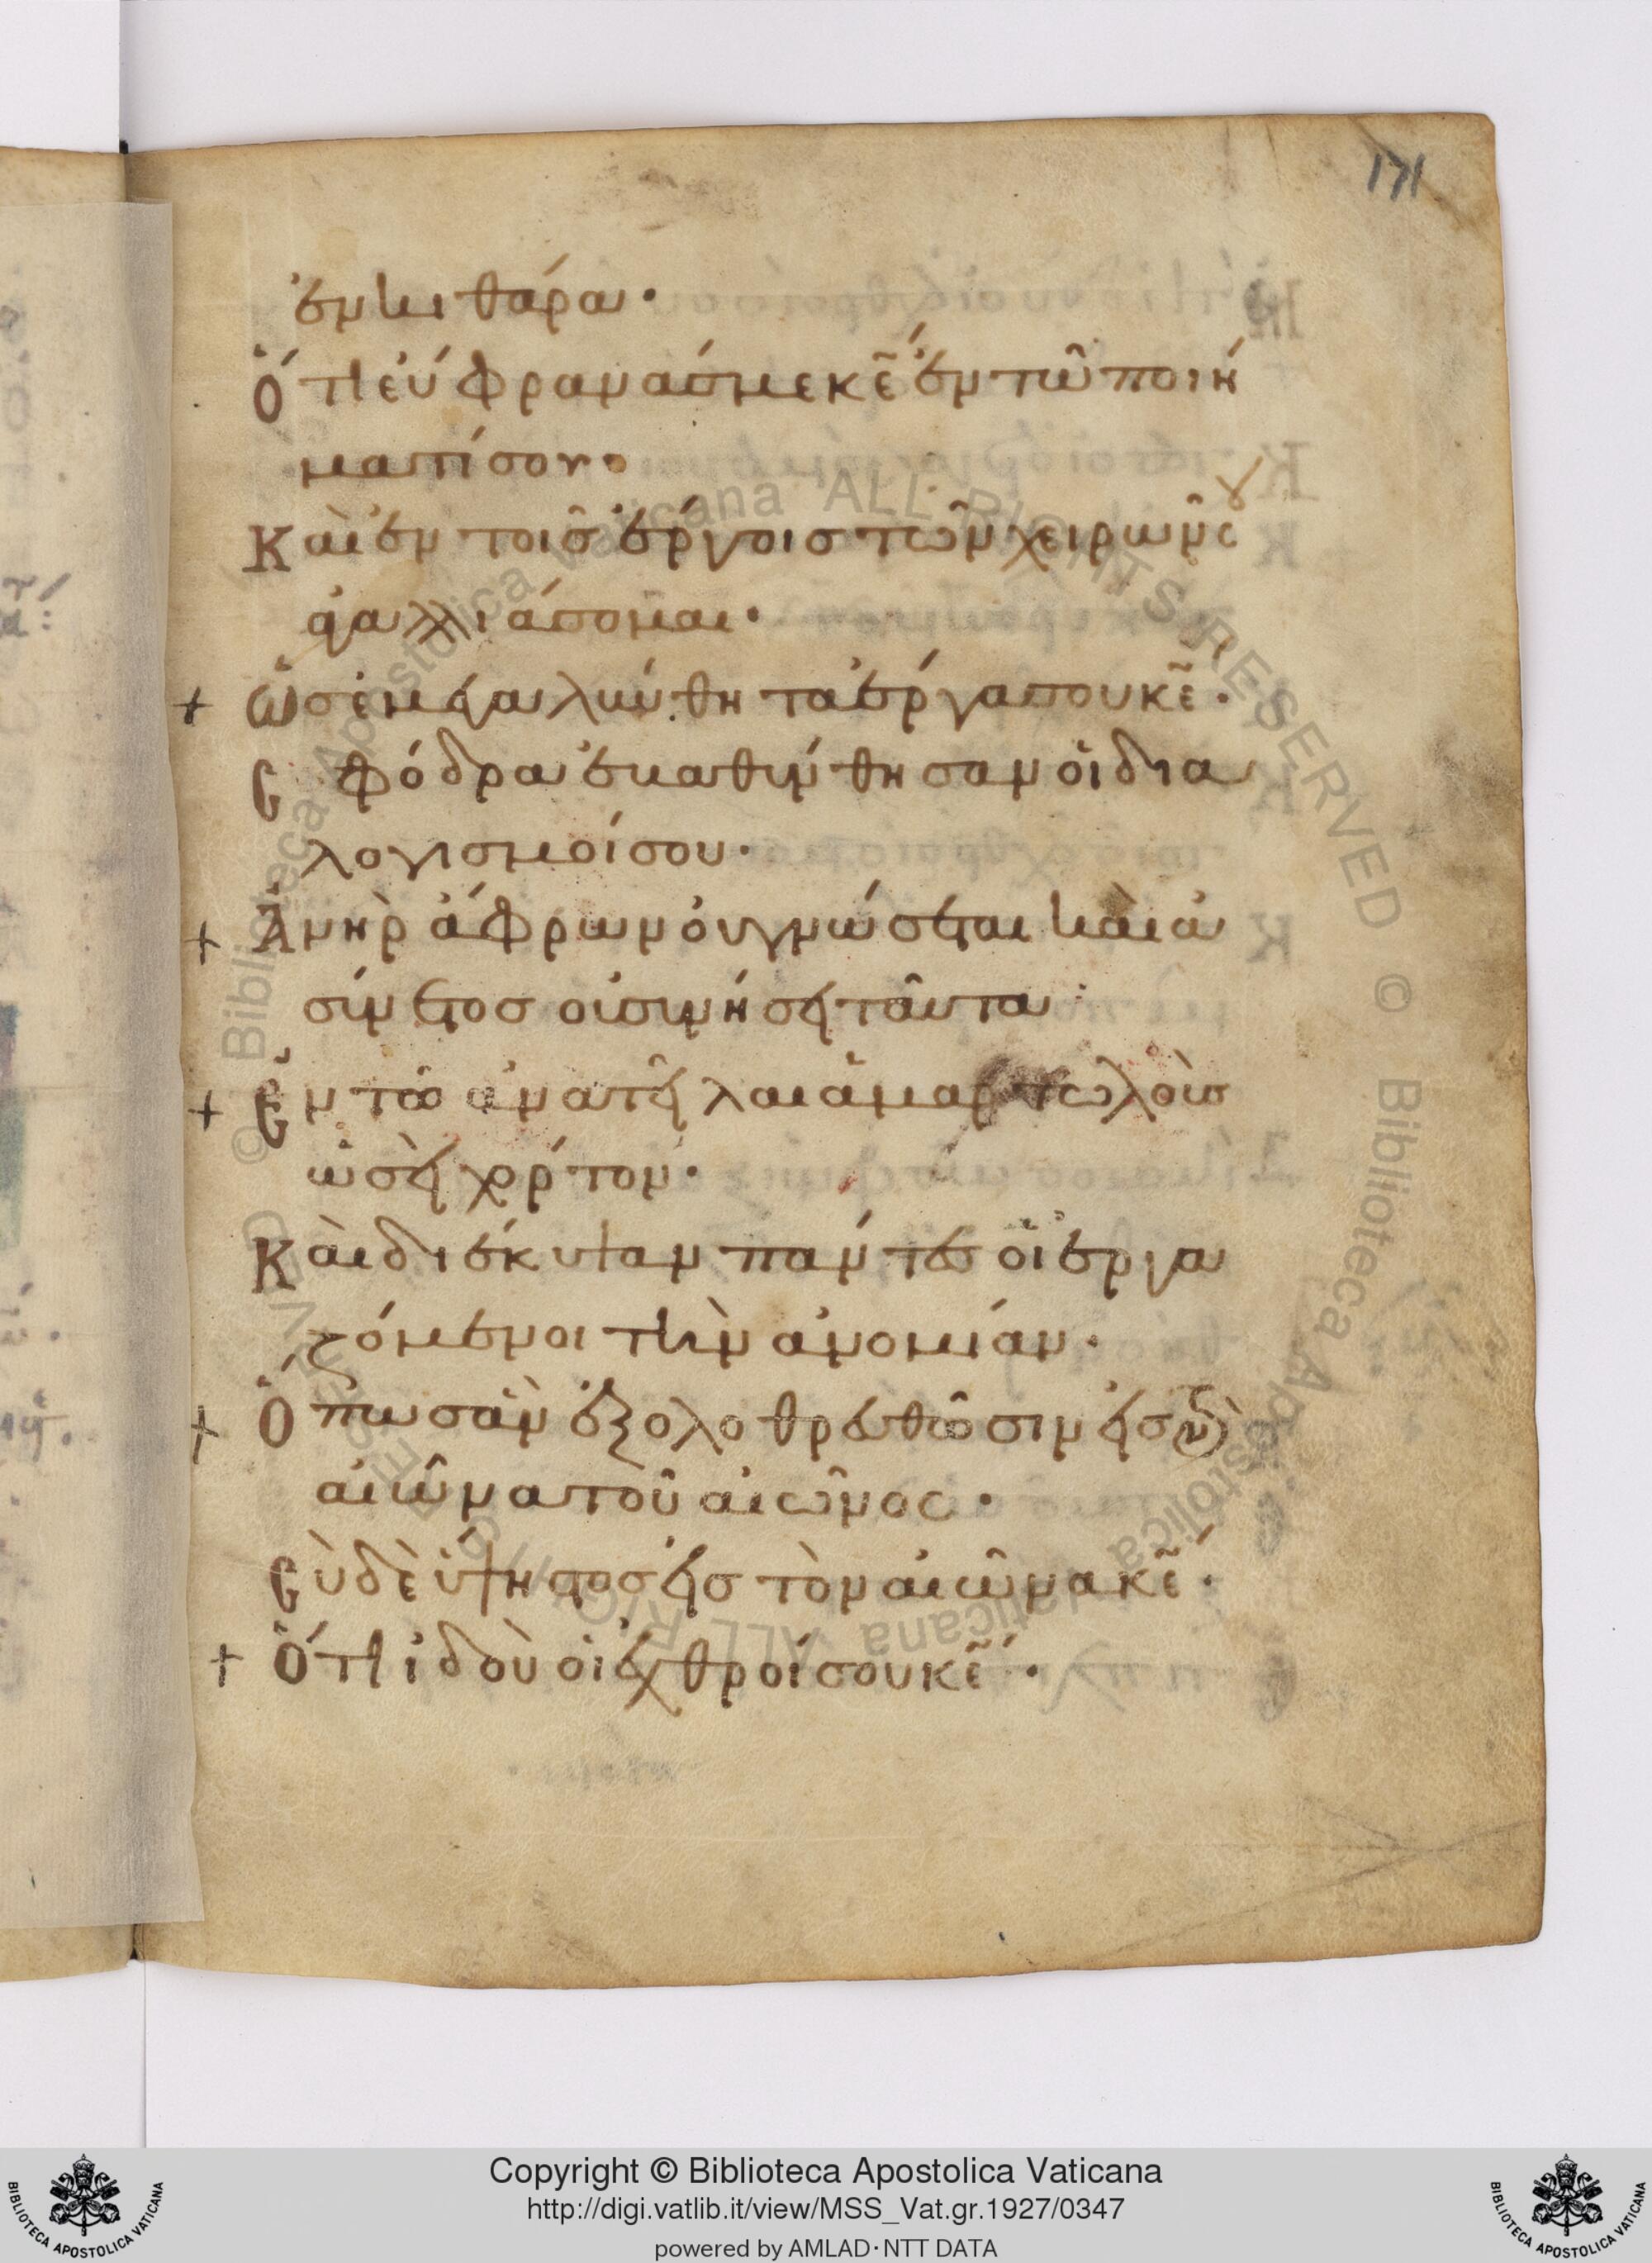 171
ἐν κιθάρα·
Ὅτι ἐύφρανάσ με κε̃ ἐν τῶ ποιή
ματί σου·
Καὶ ἐν τοῖσ ἔργοισ τῶν χειρῶν σου
ἀγαλλιάσομαι·
+ Ὡσ ἐμεγαλύνθη τα ἔργα σου κε̃·
Σφόδρα ἐβαθύνθησαν οἱ δια
λογισμοί σου·
+ Ἀνὴρ ἄφρων ὀυ γνώσεται κὰι ἀ
σύνετοσ οὐ συνήσει ταῦτα·
+ Ἐν τῶ ἀνατεῖλαι ἁμαρτωλοὺσ
ὡσεὶ χόρτον·
Κὰι διέκυψαν πάντεσ οἱ ἐργα
ζόμενοι τὴν ἀνομίαν·
+ Ὅπωσ ἂν ἐξολοθρευθῶσιν εἰσ τὸν
αἰῶνα τοῦ αἰῶνος·
Σὺ δὲ ὕψιστοσ εἰσ τὸν αἰῶνα κε̃·
+ Ὅτι ἰδοὺ οἱ ἐχθροί σου κε̃·
Copyright © Biblioteca Apostolica Vaticana
http://digi.vatlib.it/view/MSS_Vat.gr.1927/0347
powered by AMLAD·NTT DATA
BIBLIOTECA APOSTOLICA VATICANA
BIBLIOTECA APOSTOLICA VATICANA